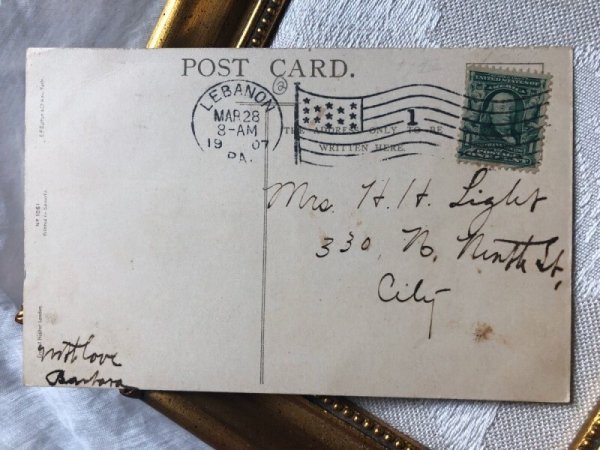 POST CARD.
LEBANON
MAR 28
8-AM
19 07
PA.
1
THE ADDRESS ONLY TO BE
WRITTEN HERE.
UNITED STATES OF
AMERICA
Mrs. H. H. Light
330, N. Ninth St,
City
With love
Barbara
Printed in Saxony.
London.